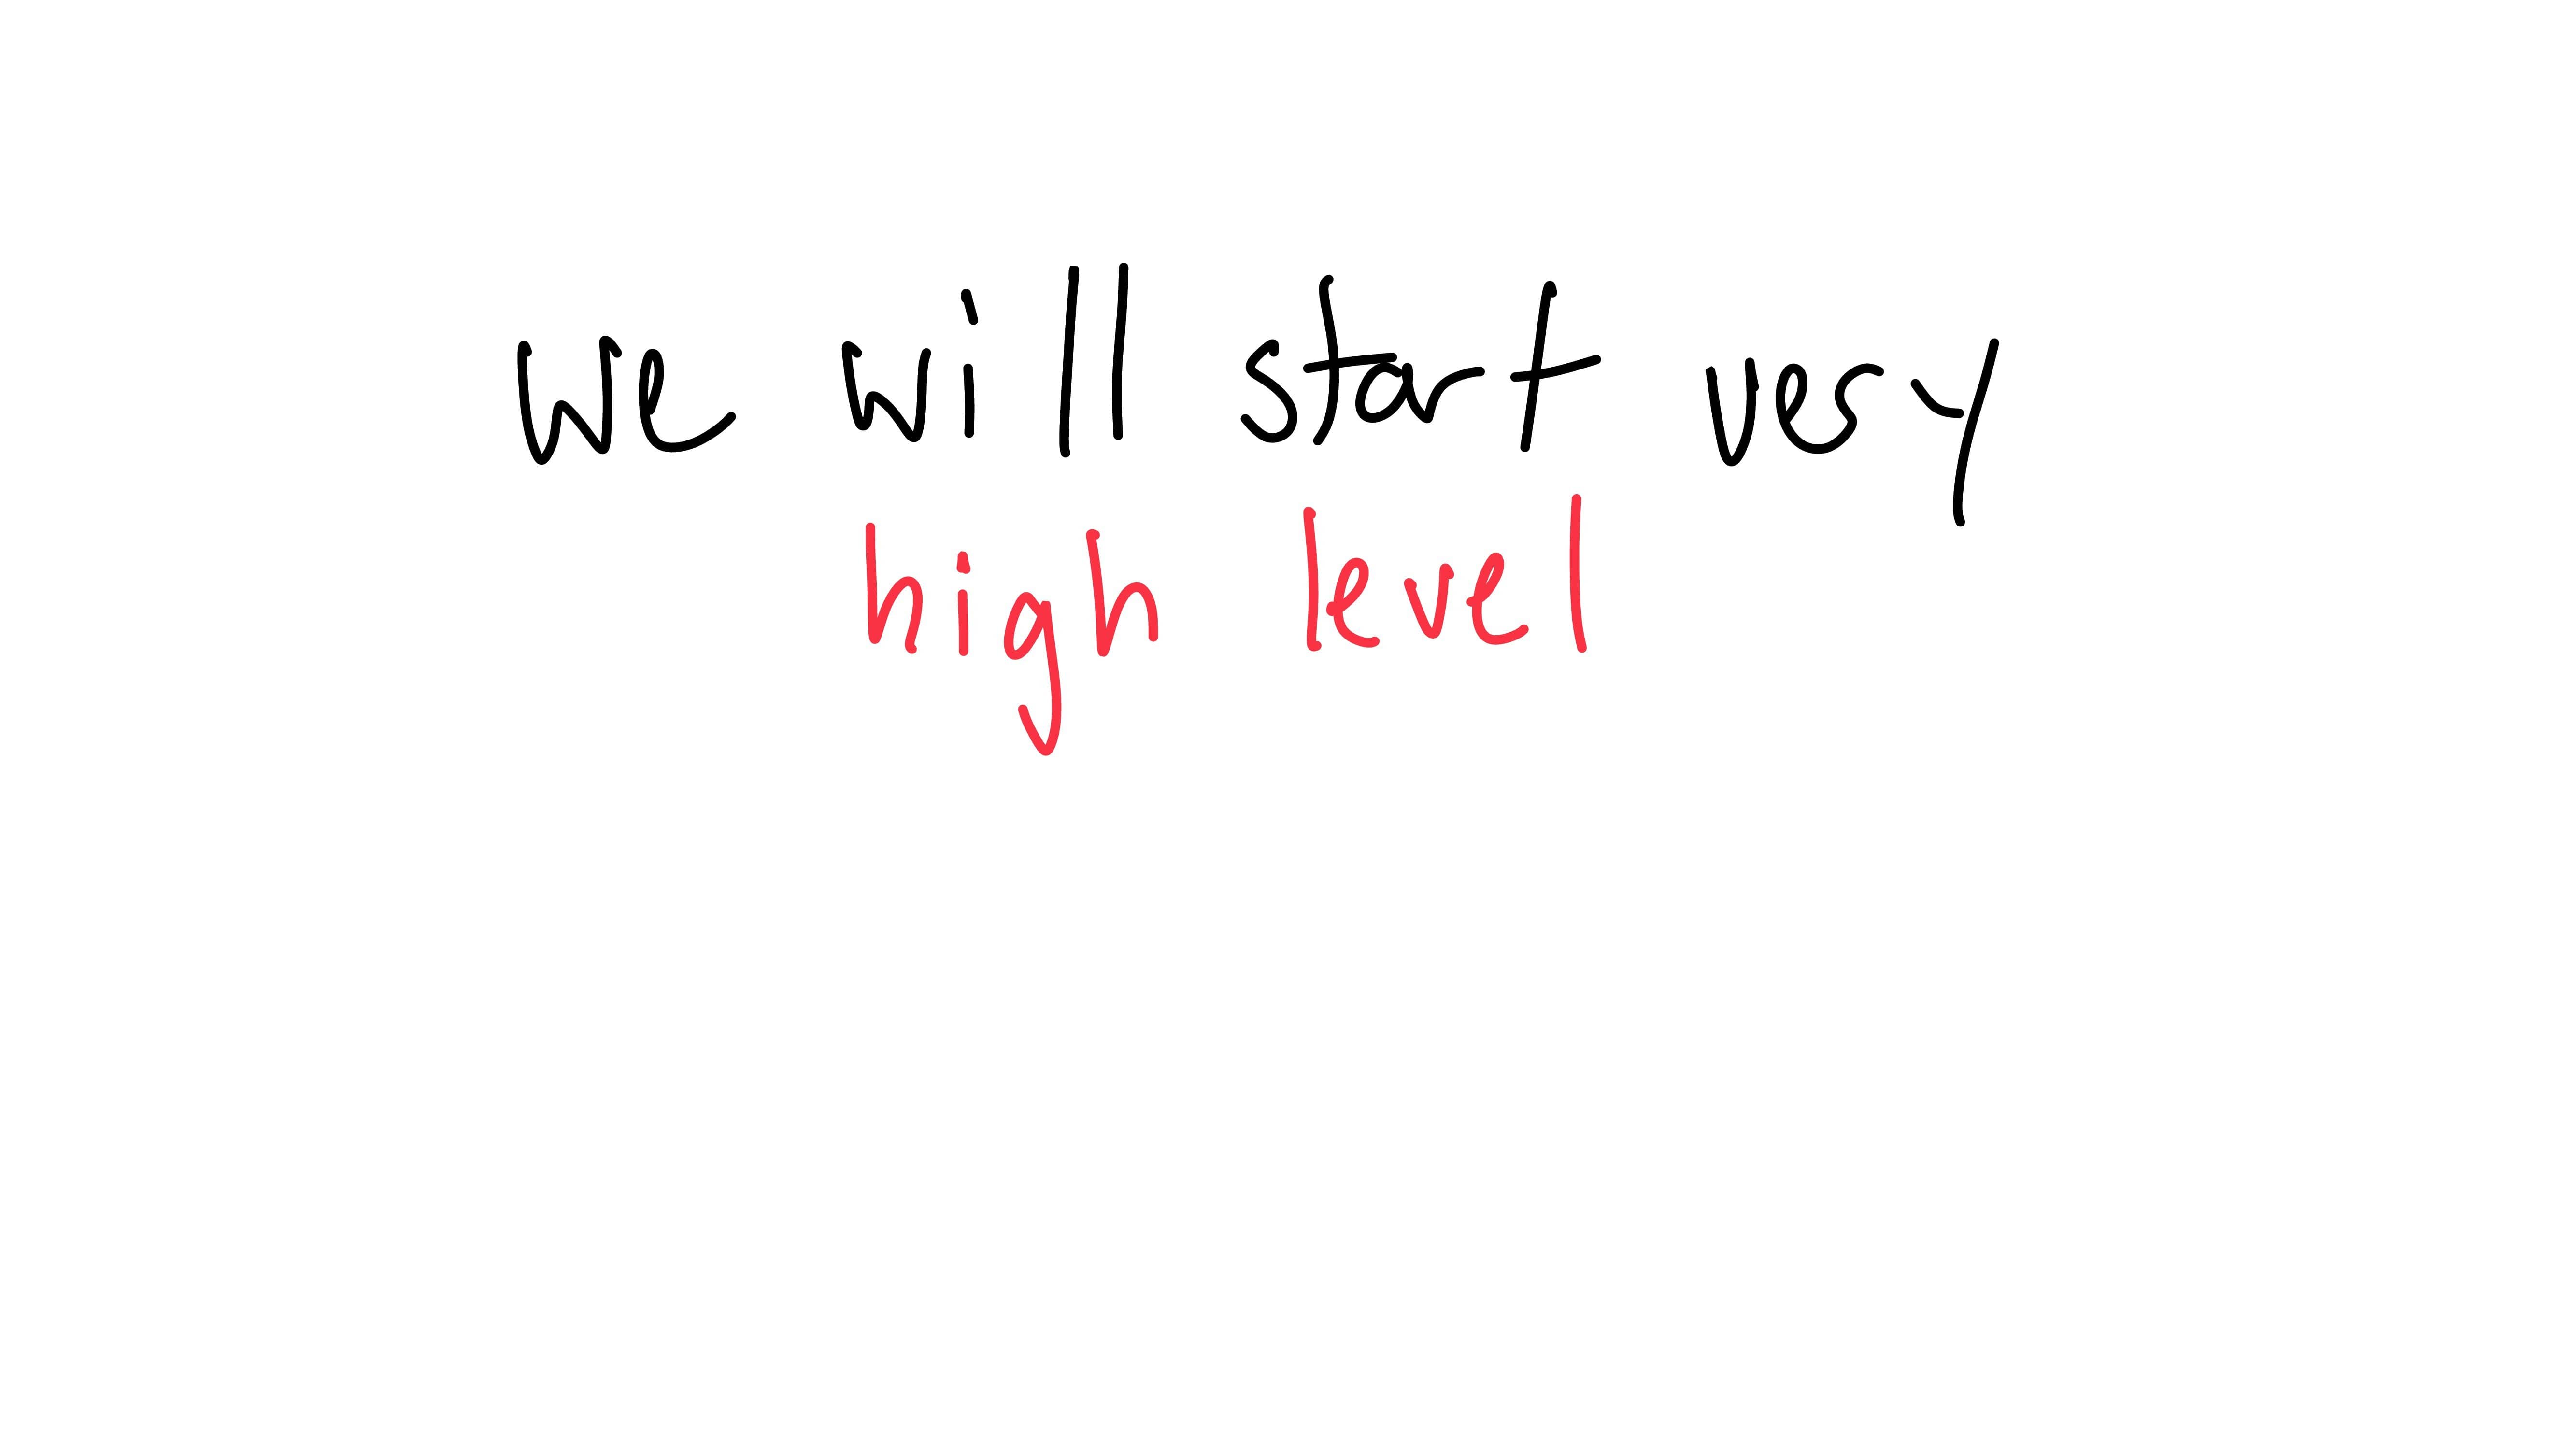 we will start very
high level